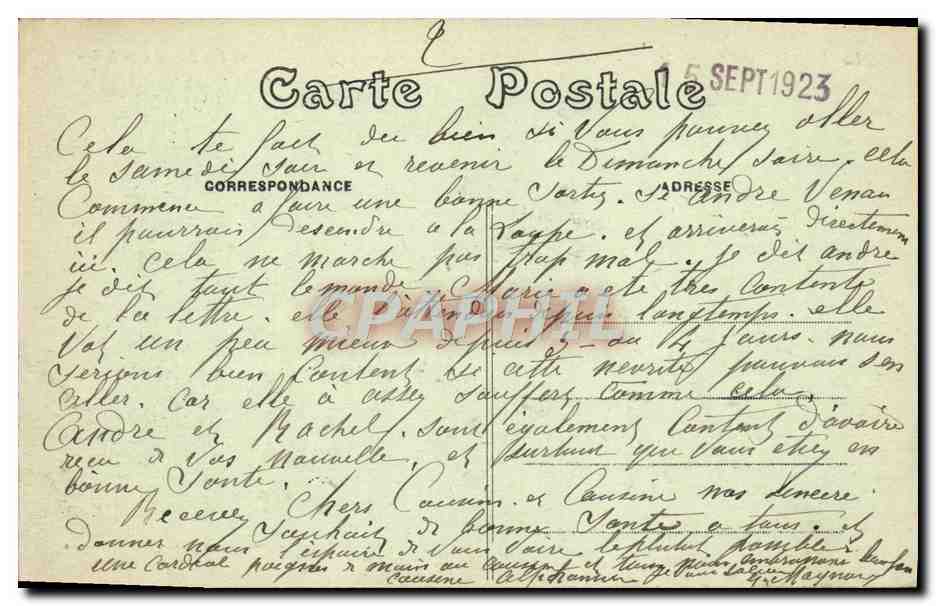 2
Carte Postale
15 SEPT 1923
Cela te fait du bien si vous pouvez aller
le samedi soir et revenir le Dimanche soire. cela
CORRESPONDANCE
ADRESSE
Commence a faire une bonne sortis. si andre Venau
il pourrais desendre a la Loupe. et arriverais directement
ici. Cela ne marche pas trop mal. je dit andre
je dit tout le monde. Marie a ete tres Contente
de la lettre. elle l'attendai depuis longtemps. elle
Vat un peu mieux depuis 3 ou 4 jours. nous
serions bien Content si cette nevrite pouvais s'en
aller. Car elle a assez souffert comme cela.
Andre et Rachel. sont également Content d'avoire
recu de Vos nouvelle, et surtout que Vous etiez en
bonne sante.
Recevez Chers Cousin et Cousine nos sincere
souhait de bonne sante a tous. et
donner nous l'espoire de Vous Voire le plutot possible
une cordial poigner de main au cousin et
cousine
CPAPHIL